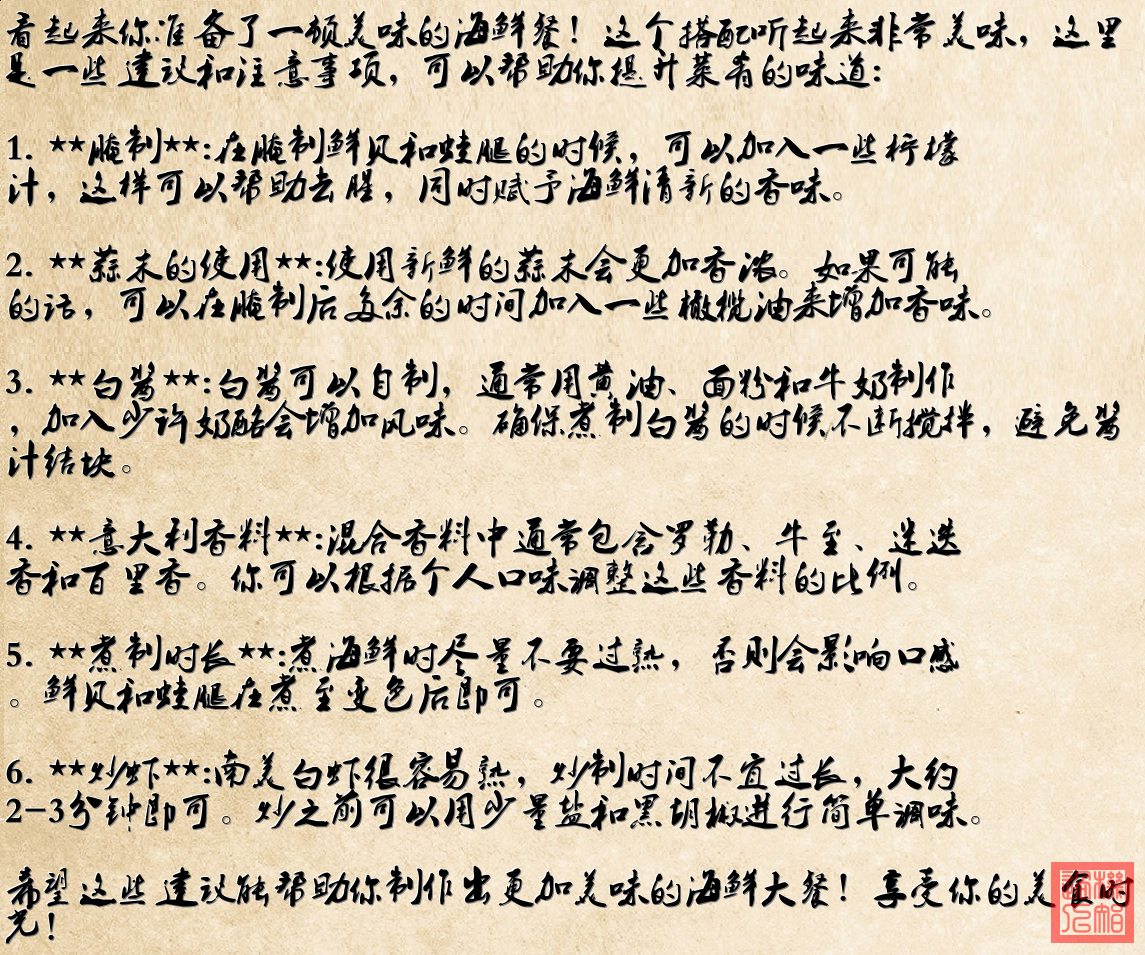 看起来你准备了一顿美味的海鲜餐！这个搭配听起来非常美味，这里
是一些建议和注意事项，可以帮助你提升菜肴的味道：
1. **腌制**:在腌制鲜贝和蛙腿的时候，可以加入一些柠檬
汁，这样可以帮助去腥，同时赋予海鲜清新的香味。
2. **蒜末的使用**:使用新鲜的蒜末会更加香浓。如果可能
的话，可以在腌制后多余的时间加入一些橄榄油来增加香味。
3. **白酱**:白酱可以自制，通常用黄油、面粉和牛奶制作
，加入少许奶酪会增加风味。确保煮制白酱的时候不断搅拌，避免酱
汁结块。
4. **意大利香料**:混合香料中通常包含罗勒、牛至、迷迭
香和百里香。你可以根据个人口味调整这些香料的比例。
5. **煮制时长**:煮海鲜时尽量不要过熟，否则会影响口感
。鲜贝和蛙腿在煮至变色后即可。
6. **炒虾**:南美白虾很容易熟，炒制时间不宜过长，大约
2-3分钟即可。炒之前可以用少量盐和黑胡椒进行简单调味。
希望这些建议能帮助你制作出更加美味的海鲜大餐！享受你的美食时
光！